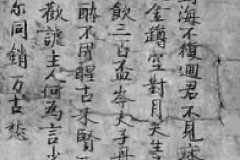 海不復迴君不見床
金罇空對月天生
飲三百盃岑夫子丹
醉不用醒古來賢
歡謔主人何為言少
尔同銷万古愁